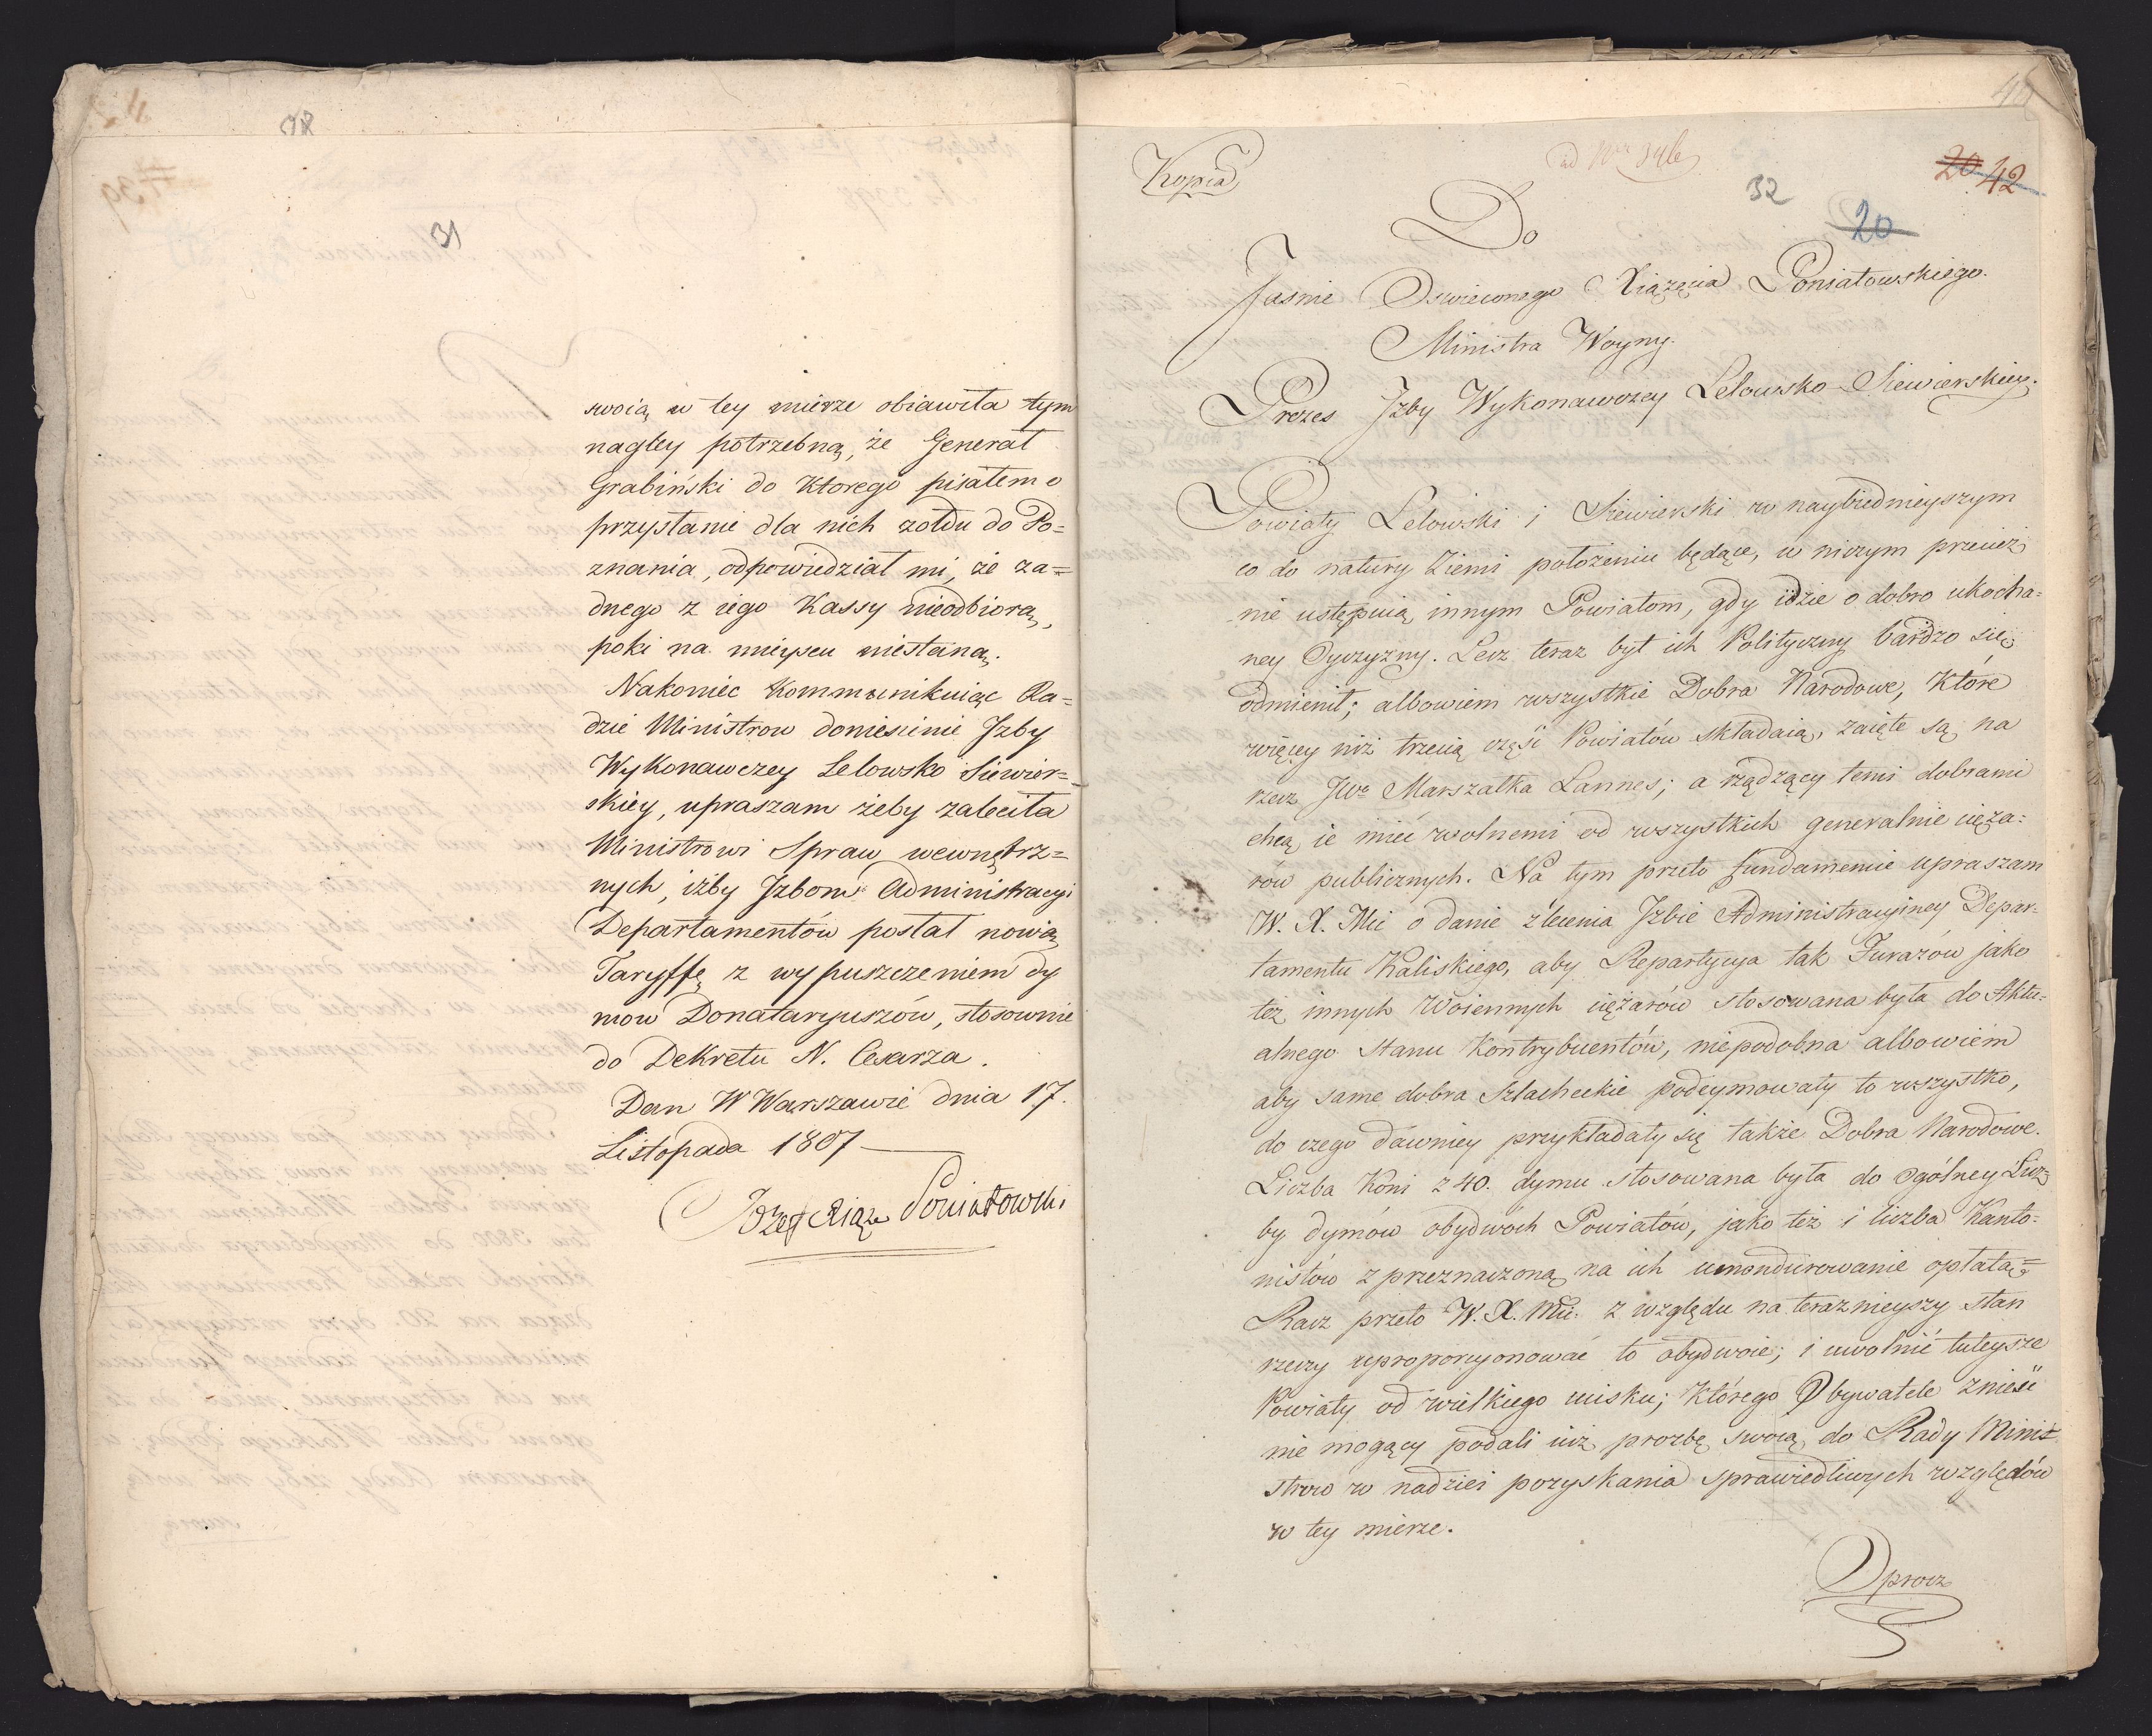 31
swoią w tey mierze obiawiła tym
nagłey potrzebną, że Generał
Grabiński do Ktorego pisałem o
przysłanie dla nich żołdu do Po=
znania, odpowiedział mi, że ża=
dnego z iego Kassy nieodbiorą,
poki na mieyscu niestaną.
Nakoniec Kommunikuiąc Ra=
dzie Ministrow doniesienie Jzby
Wykonawczey Lelowsko Siewier=
skiey, upraszam żeby zaleciła
Ministrowi Spraw wewnętrz=
nych, iżby Jzbom Administracyi
Departamentów posłał nową
Taryffę z wypuszczeniem dy
mow Donataryuszów, stosownie
do Dekretu N. Cesarza.
Dan W Warszawie dnia 17.
Listopada 1807
Jozef Xiąże Poniatowski
Kopia
20 42
32
20
Do
Jasnie Oswieconego Xiążęcia Poniatowskiego.
Ministra Woyny.
Prezes Jzby Wykonawczey Lelowsko-Siewierskiey.
Powiaty Lelowski i Siewierski w naybiednieyszym
co do natury Ziemi położeniu będące, w niczym przecież
nie ustępuią innym Powiatom, gdy idzie o dobro ukocha=
ney Oyczyzny. Lecz teraz byt ich Polityczny bardzo się
odmienił; albowiem wszystkie Dobra Narodowe, Które
więcey niż trzecią część Powiatów składaią, zaięte są na
rzecz JWo Marszałka Lannes; a rządzący temi dobrami
chcą ie mieć wolnemi od wszystkich generalnie cięża=
rów publicznych. Na tym przeto fundamencie upraszam
W. X. Mci o danie zlecenia Jzbie Administracyiney Depar=
tamentu Kaliskiego, aby Repartycya tak Furażów jako
też innych Woiennych ciężarów stosowana była do Aktu=
alnego Stanu Kontrybuentów, niepodobna albowiem
aby same dobra Szlacheckie podeymowały to wszystko,
do czego dawniey przykładały się także Dobra Narodowe.
Liczba Koni z 40. dymu stosowana była do ogólney Licz=
by dymów obydwóch Powiatów, jako też i liczba Kanto=
nistów z przeznaczoną na ich umondurowanie opłatą=
Racz przeto W. X. Mci. z względu na teraznieyszy stan
rzeczy uproporcyonować to obydwoie; i uwolnić tuteysze
Powiaty od wielkiego ucisku; Którego Obywatele znieść
nie mogący podali iuż prozbę swoią do Rady Mini=
strow w nadziei pozyskania sprawiedliwych względów
w tey mierze.
Oprocz